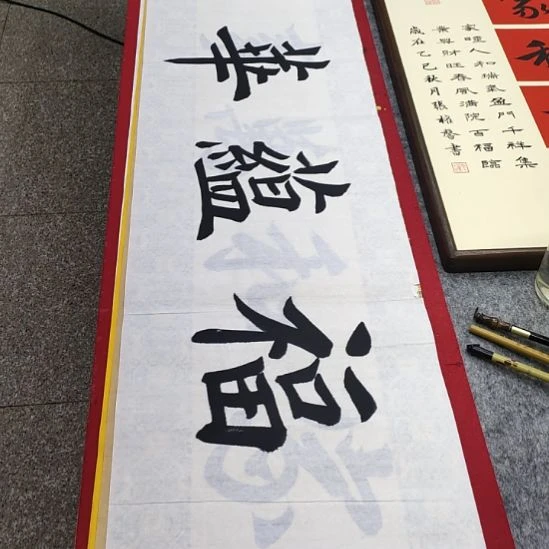 福蘊華
家睦人和瑞氣盈門千祥集
業興財旺春風滿院百福臨
歲在乙巳秋月張書